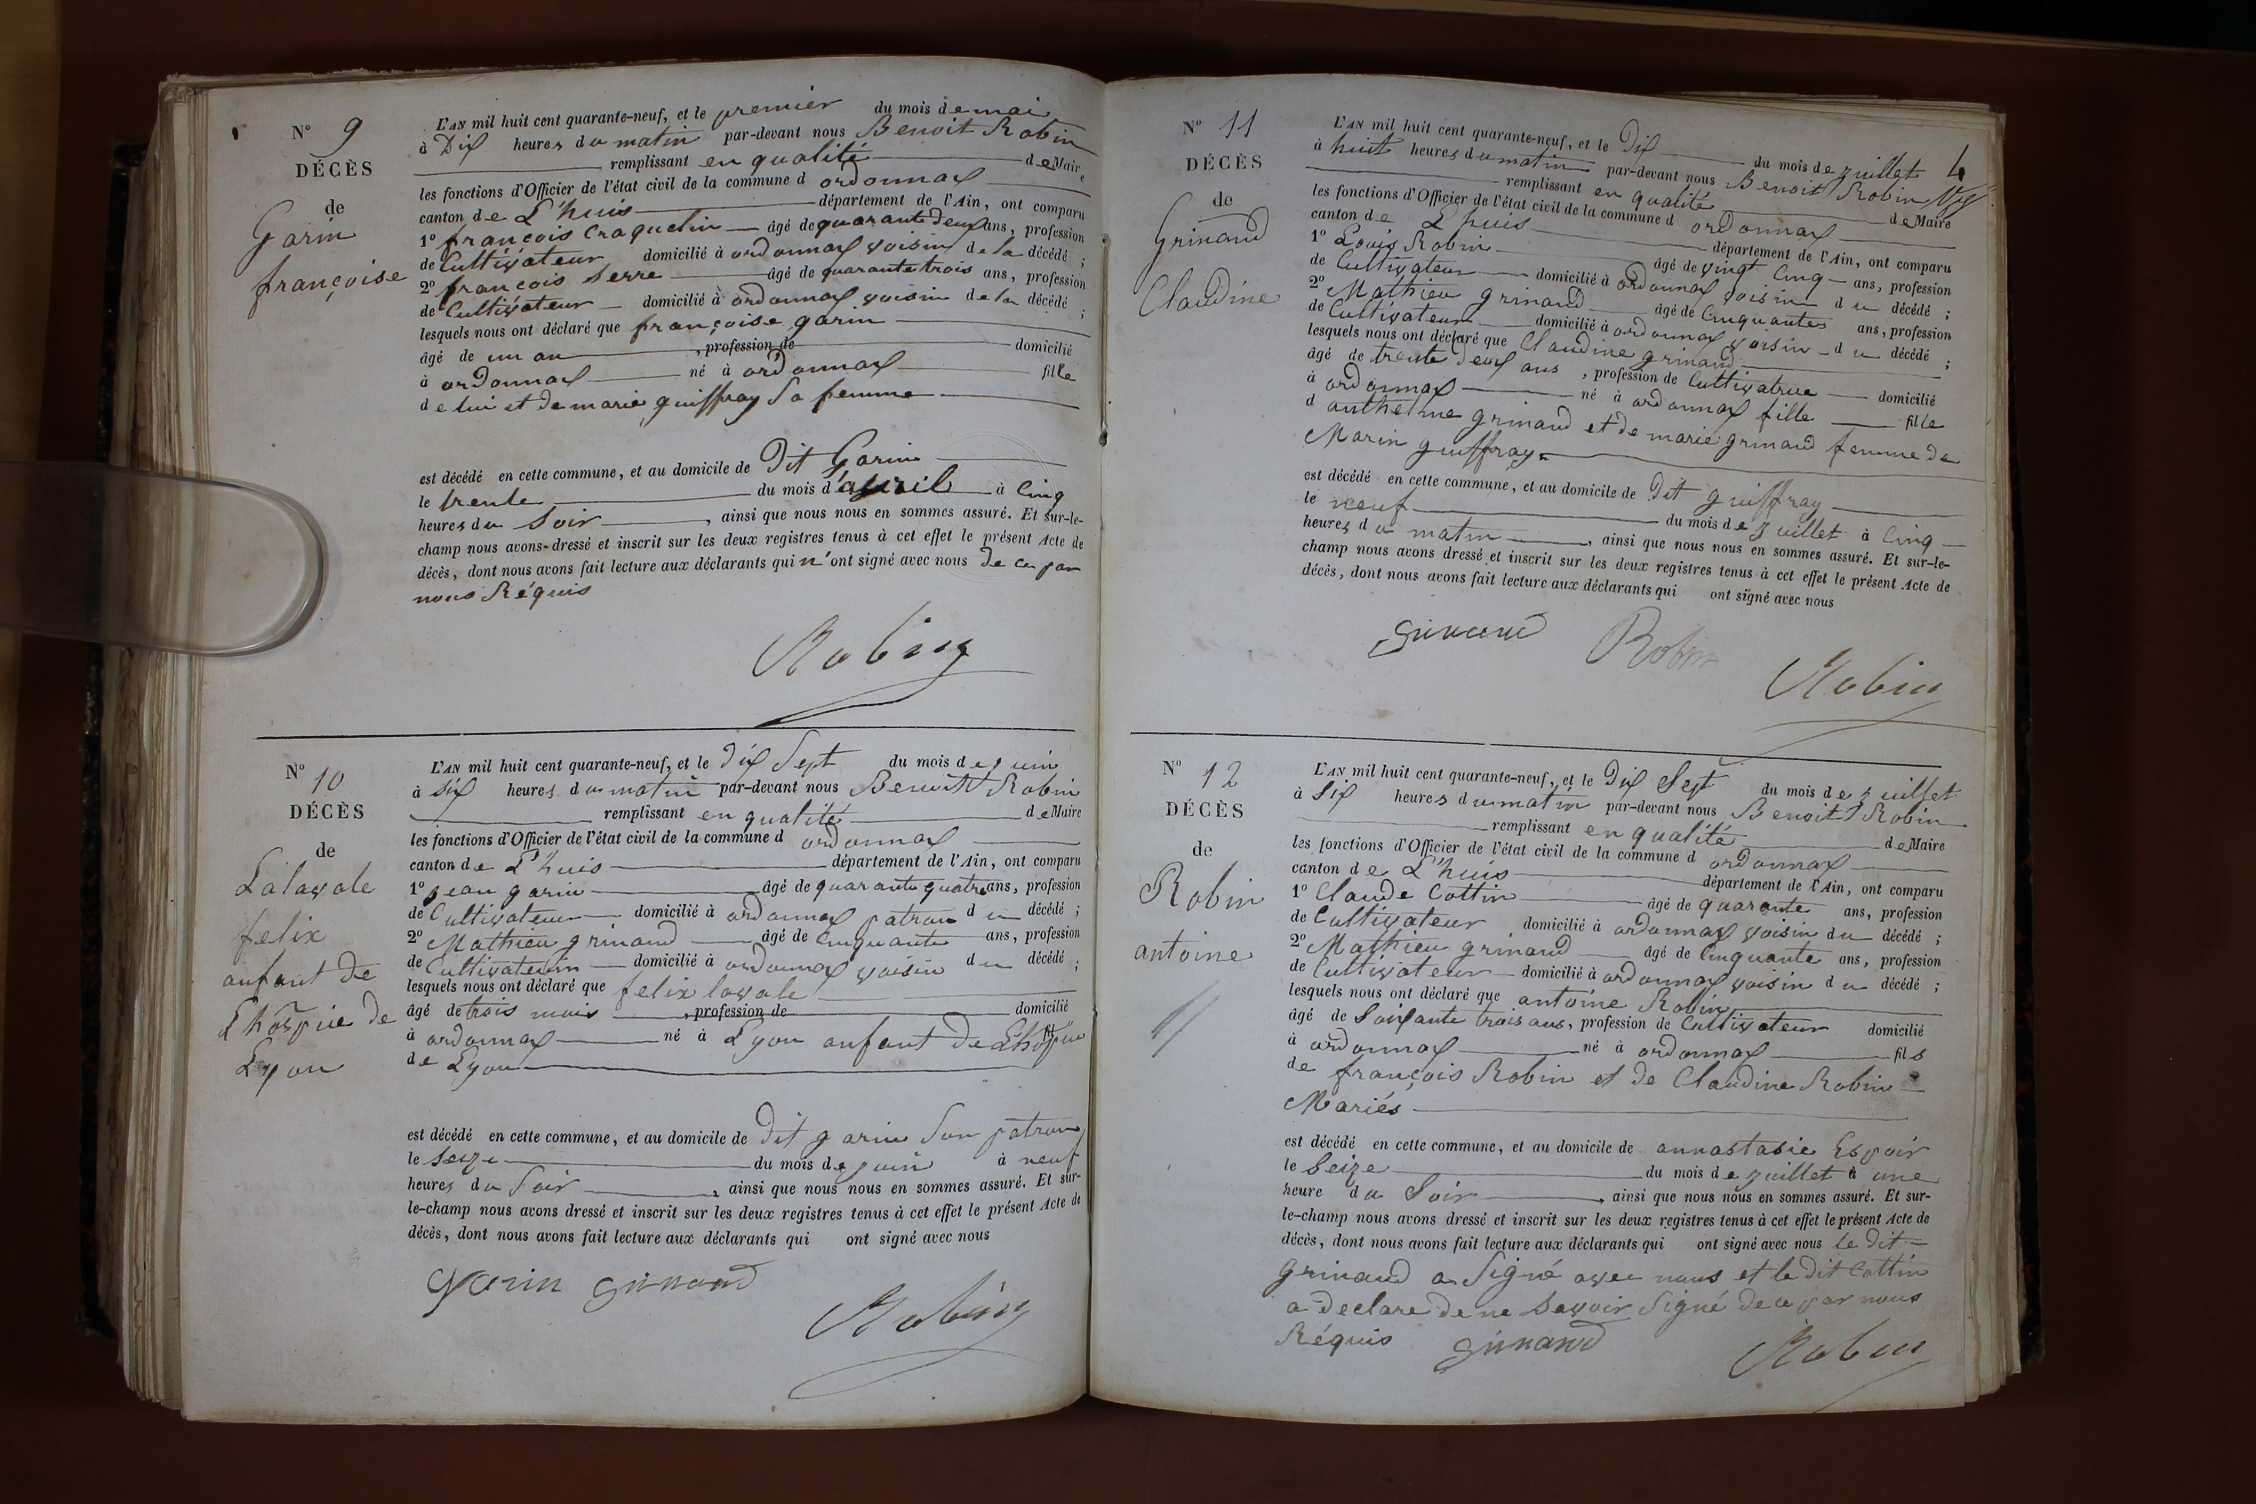 N° 9
DÉCÈS
de
Garin
françoise
L'AN mil huit cent quarante-neuf, et le premier du mois de mai
à Dix heures du matin par-devant nous Benoit Robin
remplissant en qualité de Maire
les fonctions d'Officier de l'état civil de la commune d ordonnax
canton de L'huis département de l'Ain, ont comparu
1° françois Craquelin âgé de quarante deux ans, profession
de Cultivateur domicilié à ordonnax voisin de la décédé ;
2° françois Serre âgé de quarante trois ans, profession
de Cultivateur domicilié à ordonnax voisin de la décédé ;
lesquels nous ont déclaré que françoise garin
âgé de un an , profession de domicilié
à ordonnax né à ordonnax fille
de lui et de marie guiffray Sa femme
est décédé en cette commune, et au domicile de Dit Garin
le trente du mois d'avril à Cinq
heures du Soir , ainsi que nous nous en sommes assuré. Et sur-le-
champ nous avons dressé et inscrit sur les deux registres tenus à cet effet le présent Acte de
décès, dont nous avons fait lecture aux déclarants qui n'ont signé avec nous de ce par
nous Réquis
Robin
N° 10
DÉCÈS
de
Lalavale
felix
anfant de
Lhospie de
Lyon
L'AN mil huit cent quarante-neuf, et le dix Sept du mois de juin
à Six heures du matin par-devant nous Benoit Robin
remplissant en qualité de Maire
les fonctions d'Officier de l'état civil de la commune d ordonnax
canton de L'huis département de l'Ain, ont comparu
1° jean garin âgé de quarante quatre ans, profession
de Cultivateur domicilié à ordonnax patron du décédé ;
2° Mathieu grinand âgé de Cinquante ans, profession
de Cultivateur domicilié à ordonnax voisin du décédé ;
lesquels nous ont déclaré que felix lavale
âgé de trois mois , profession de domicilié
à ordonnax né à Lyon anfant de Lhospie fil
de Lyon
est décédé en cette commune, et au domicile de dit garin Son patron
le Seize du mois de juin à neuf
heures du Soir , ainsi que nous nous en sommes assuré. Et sur-
le-champ nous avons dressé et inscrit sur les deux registres tenus à cet effet le présent Acte de
décès, dont nous avons fait lecture aux déclarants qui ont signé avec nous
garin grinand
Robin
4
N° 11
DÉCÈS
de
Grinand
Claudine
L'AN mil huit cent quarante-neuf, et le Dix du mois de juillet
à huit heures du matin par-devant nous Benoit Robin
remplissant en qualité de Maire
les fonctions d'Officier de l'état civil de la commune d ordonnax
canton de L'huis département de l'Ain, ont comparu
1° Louis Robin âgé de vingt Cinq ans, profession
de Cultivateur domicilié à ordonnax voisin du décédé ;
2° Mathieu grinand âgé de Cinquantes ans, profession
de Cultivateur domicilié à ordonnax voisin du décédé ;
lesquels nous ont déclaré que Claudine grinand
âgé de trente deux ans , profession de Cultivatrice domicilié
à ordonnax né à ordonnax fille fille
d anthelme grinand et de marie grinand femme de
Marin guiffray
est décédé en cette commune, et au domicile de Dit guiffray
le neuf du mois de juillet à Cinq
heures du matin , ainsi que nous nous en sommes assuré. Et sur-le-
champ nous avons dressé et inscrit sur les deux registres tenus à cet effet le présent Acte de
décès, dont nous avons fait lecture aux déclarants qui ont signé avec nous
grinand Robin
Robin
N° 12
DÉCÈS
de
Robin
antoine
L'AN mil huit cent quarante-neuf, et le Dix Sept du mois de juillet
à Six heures du matin par-devant nous Benoit Robin
remplissant en qualité de Maire
les fonctions d'Officier de l'état civil de la commune d ordonnax
canton de L'huis département de l'Ain, ont comparu
1° Claude Cottin âgé de quarante ans, profession
de Cultivateur domicilié à ordonnax voisin du décédé ;
2° Mathieu grinand âgé de Cinquante ans, profession
de Cultivateur domicilié à ordonnax voisin du décédé ;
lesquels nous ont déclaré que antoine Robin
âgé de Soixante trois ans, profession de Cultivateur domicilié
à ordonnax né à ordonnax fils
de françois Robin et de Claudine Robin
Mariés
est décédé en cette commune, et au domicile de annastasie Espoir
le Seize du mois de juillet à une
heure du Soir , ainsi que nous nous en sommes assuré. Et sur-
le-champ nous avons dressé et inscrit sur les deux registres tenus à cet effet le présent Acte de
décès, dont nous avons fait lecture aux déclarants qui ont signé avec nous le dit
grinand a Signé avec nous et le dit Cottin
a declare de ne Savoir Signé de ce par nous
Réquis grinand Robin